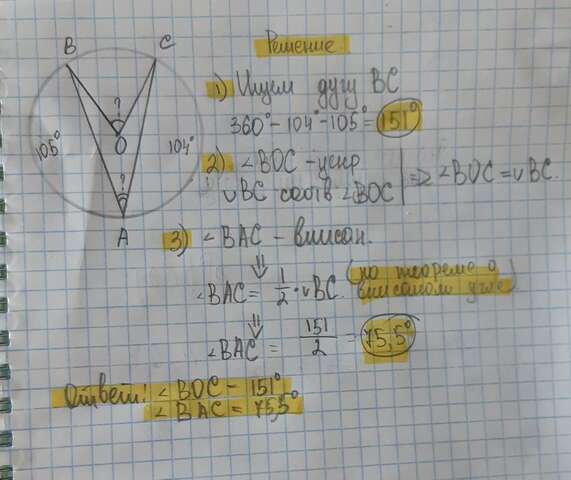 B C
Решение
?
O
105°
104°
?
A
1) Ищем дугу BC
360° - 104° - 105° = 151°
2) ∠BOC - центр.
∪BC - соотв ∠BOC | => ∠BOC = ∪BC.
3) ∠BAC - вписан.
⇓
∠BAC = 1/2 · ∪BC. (по теореме о вписаном угле)
⇓
∠BAC = 151/2 = 75,5°
Ответ: ∠BOC - 151°
∠BAC = 75,5°